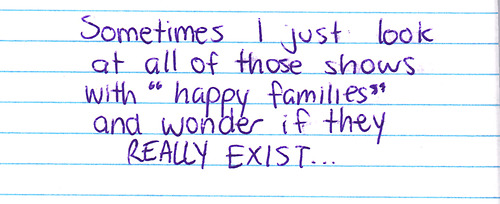 Sometimes I just look
at all of those shows
with "happy families"
and wonder if they
REALLY EXIST...